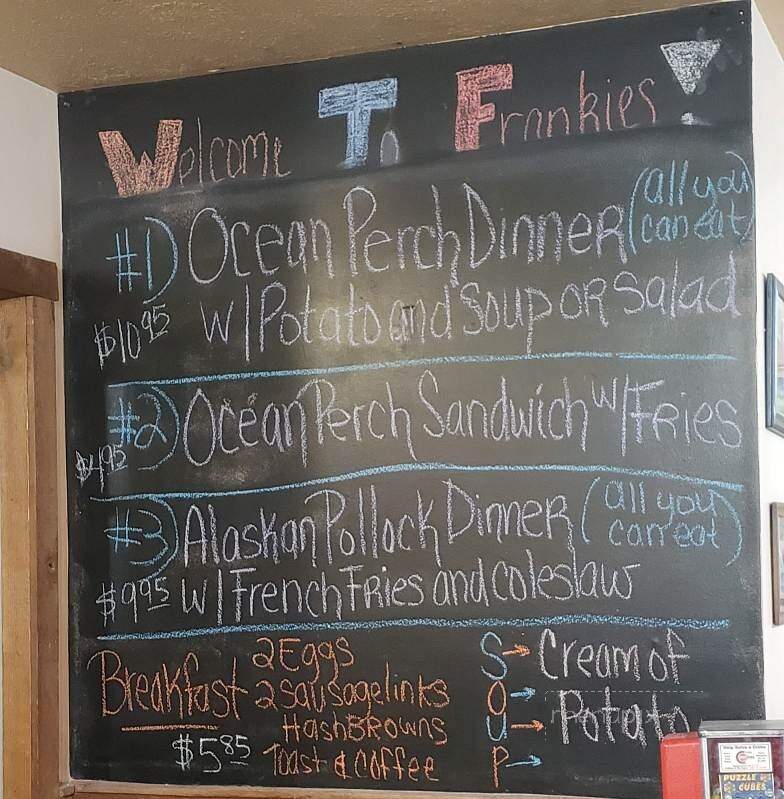 Welcome To Frankies!
#1) Ocean Perch Dinner (all you can eat)
$10.95 w/ Potato and Soup or Salad
#2) Ocean Perch Sandwich w/ Fries
$4.95
#3) Alaskan Pollock Dinner (all you can eat)
$9.95 w/ French Fries and coleslaw
Breakfast 2 Eggs
2 sausage links
Hash Browns
$5.85 Toast & Coffee
SOUP → Cream of
Potato
PUZZLE
CUBES